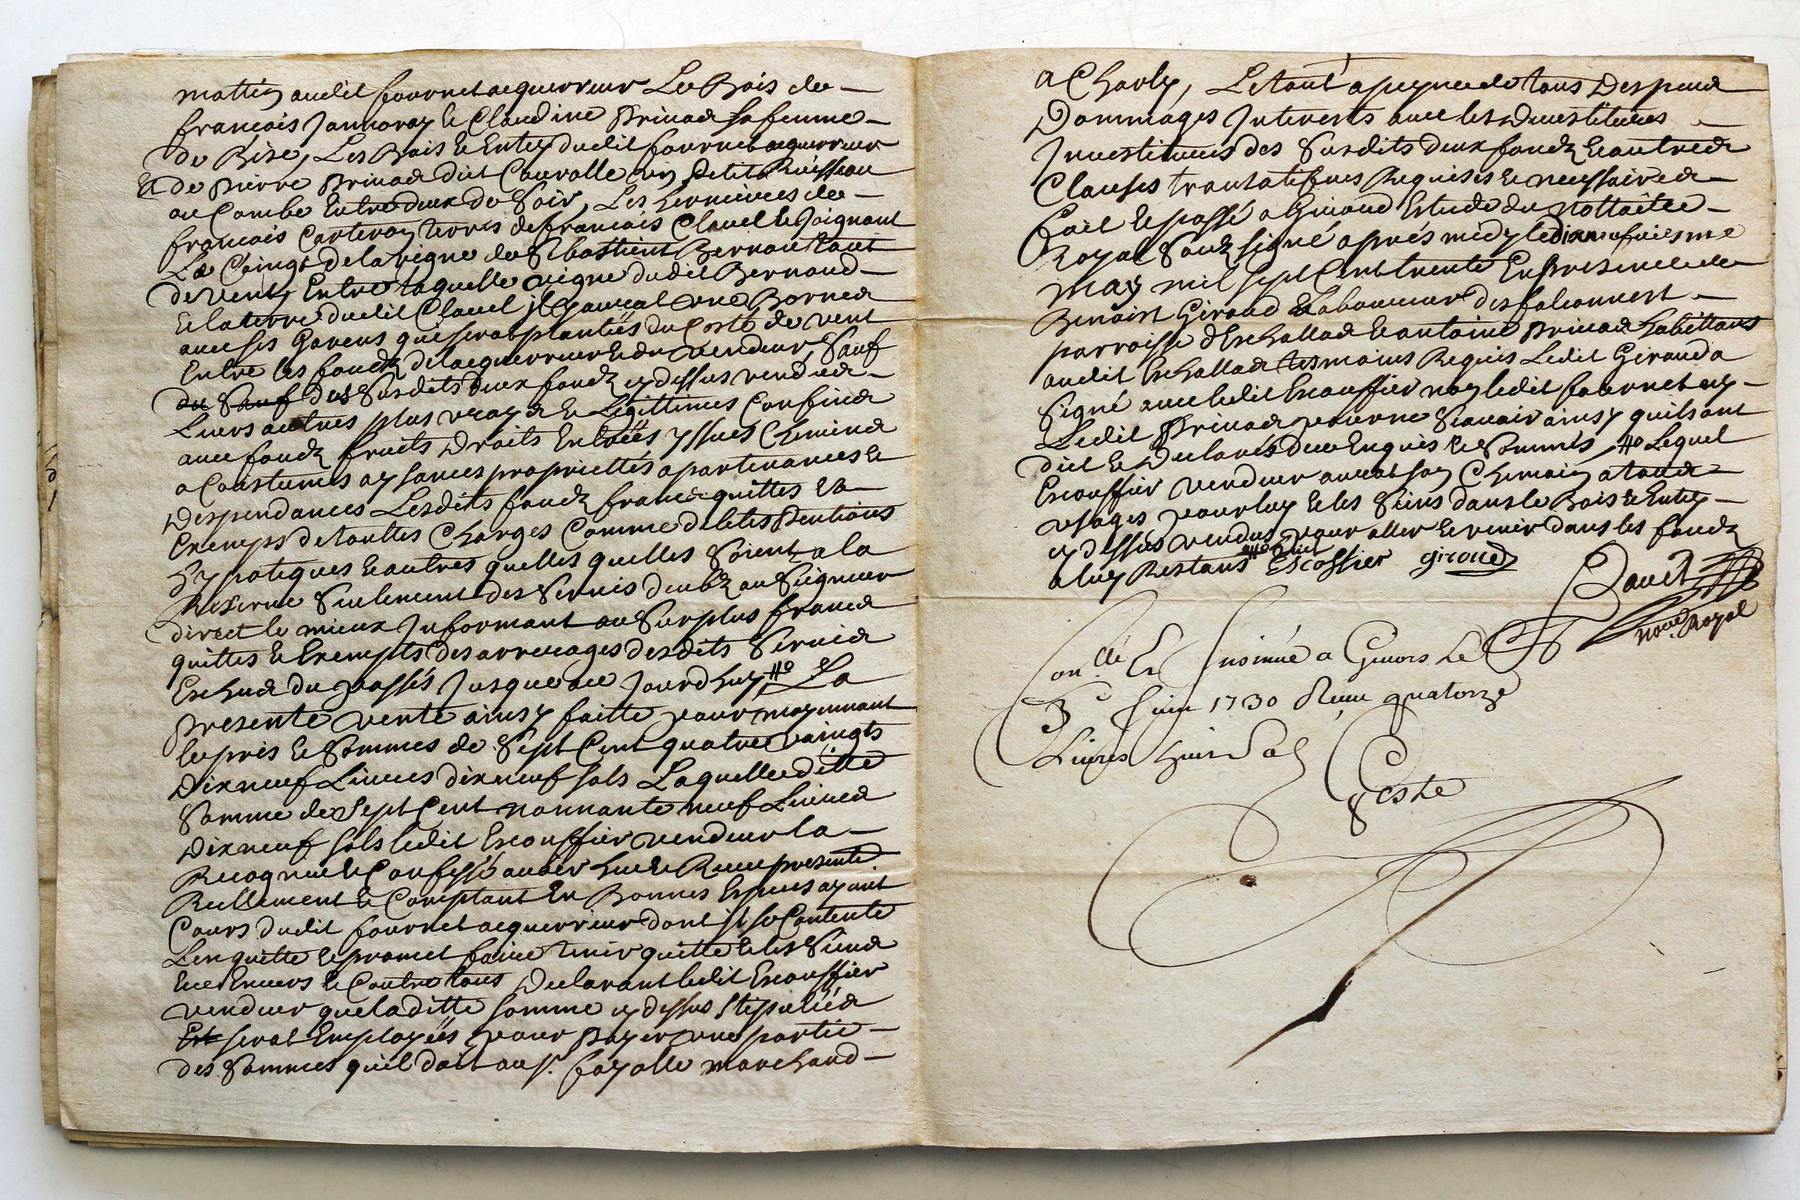 mattin audit fournet acquerreur Les Bois de
francois Jannoray & Claudine Brinas sa femme
de Bize, Les Bois & Entez dudit fournet acquerreur
& de Pierre Brinas dict un petit Ruisseau
ou Combe Entre deux de Soir, Les de
francois terres de francois Clavel le Joignant
La Ceingt de la vigne de Sebastient Bernau
de vent, Entre laquelle vigne dudit Bernaud
& la terre dudit Clavel il y aurat une Borne
avec ses Garens qui serat plantées du Costé de vent
Entre les fondz de lacquerreur & du vendeur, Sauf
du Sauf des Susdits deux fondz cy dessus vendus
Leurs autres plus vrays & Legittimes Confins
avec fondz fruits Droits Entrées yssues Chemins
a Coustumés aysances proprietés apartenances &
Despendances Lesdits fondz francs quittes &
Exemps de touttes Charges Comme debtes Pentions
hypotiques & autres quelles quelles Soient, a la
Reserve Seulement des Servis deubz au Seigneur
direct le mieux Informant au Surplus francs
quittes & Exempts des arrerages desdits Servis
Escheus du passés Jusques a ce Jourdhuy, La
presente vente ainsy faitte pour moyennant
le pris & Sommes de Sept Cent quatre vaingts
Dixneuf Livres dixneuf sols Laquelle ditte
Somme de Sept Cent nonnante neuf Livres
Dixneuf sols ledit Escouffier vendeur la
Recogneu & Confessé avoir heu & Receu presente
Reellement & Comptant En Bonnes Especes ayant
Cours dudit fournet acquerreur dont il se Contente
Len quitte & promet faire tenir quitte & les Siens
Envers & Contre tous Declarant ledit Escouffier
vendeur que la ditte somme cy dessus Stipulée
Est serat Employées pour payer une partie
des Sommes quil doit au Sr. fayolle marchand
a Charly, Le tout a peyne de tous Despens
Dommages Interests avec les devestitures
Investitures des Susdits deux fondz & autres
Clauses translatifves Requises & necessaires
fait & passé a Givord Estude du nottaire
Royal Souz signé aprés midy le dixneufviesme
may mil sept Cent trente En presence de
Benoist Giroud Laboureur
parroisse dEschallas & antoine Brinas habittans
audit Eschallas tesmoins Requis Ledit Giroud a
Signé avec ledit Escouffier non ledit fournet ny
Ledit Brinas pour ne Scavoir ainsy quils ont
dict & Declarés Deue Enquis & Sommés, Lequel
Escouffier vendeur aurat son Chemin a toute
usages pour luy & les Siens dans le Bois & Entez
cy dessus vendus pour aller & venir dans les fondz
a luy Restans Escoffier giroud
nore. Royal
Con.lle Et Insinué a Givors Le
3e Juin 1730 Receu quatorze
Livres huit Sols
Coste